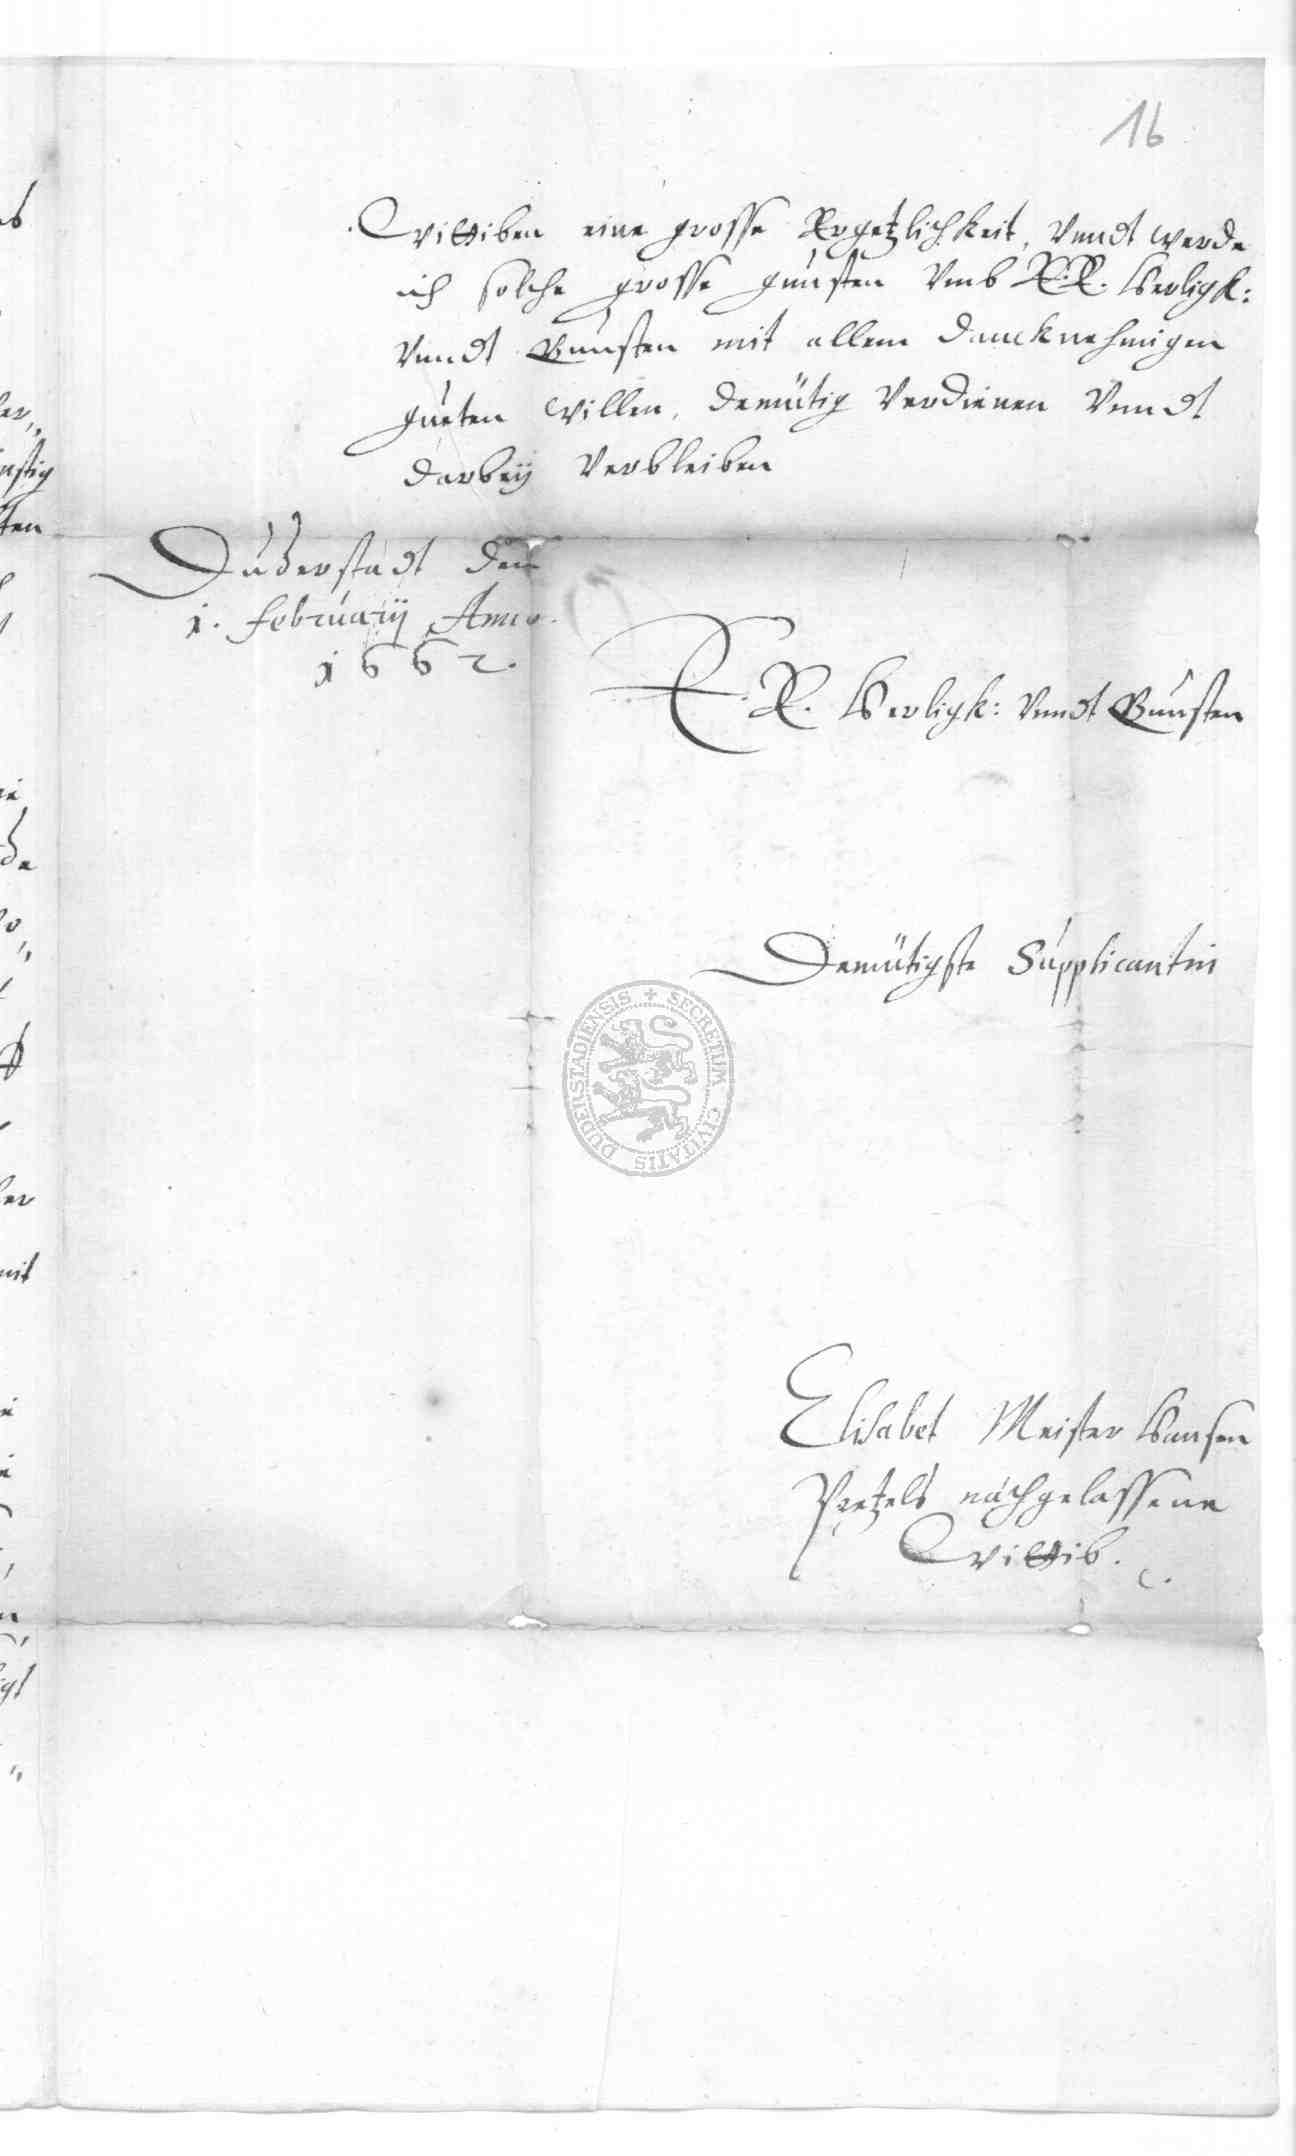 16
Wittiben eine grosse Ergetzlichkeit, Vnndt werde
ich solche grosse gunsten Vmb E.E. Herligk:
Vnndt Gunsten mit allem dancknehmigen
gueten Willen, demütig Verdienen Vnndt
darbeÿ Verbleiben
Duderstadt den
1. Februarij Anno.
1662.
E. E. Herligk: Vnndt Gunsten
Demütigste Supplicantin
SECRETUM CIVITATIS DUDERSTADIENSIS
Elisabet Meister Hansen
Pretzels nachgelassene
Wittib.